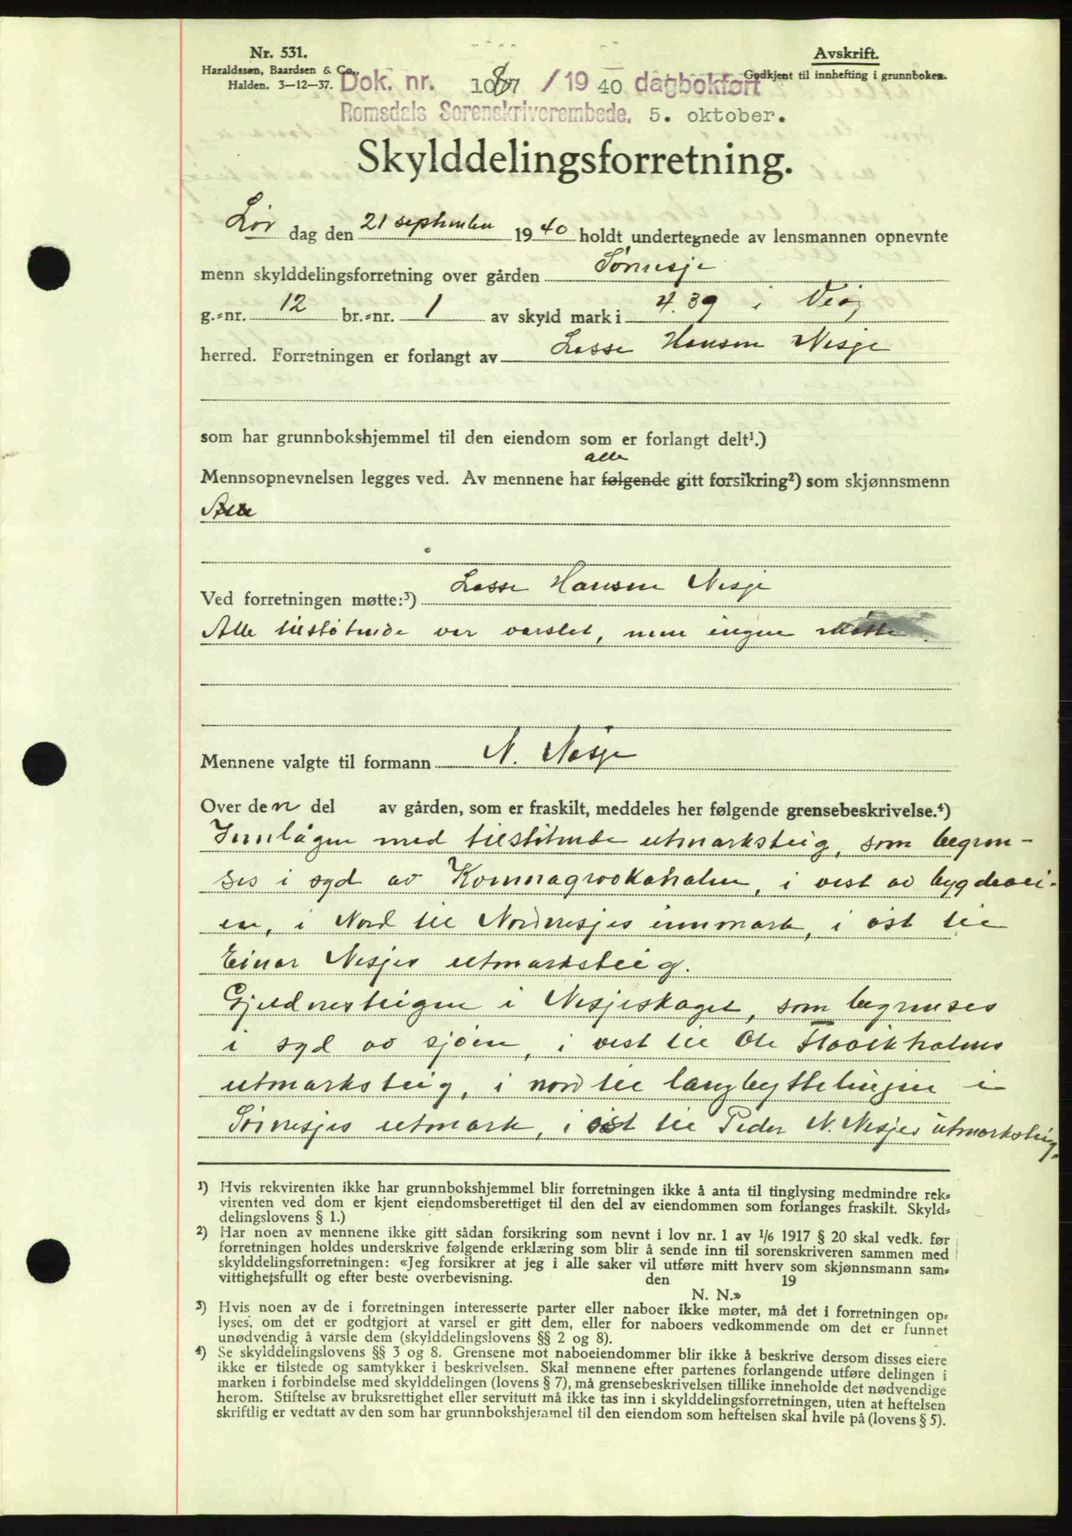 Nr. 531.
Haraldssen, Baardsen & Co.,
Halden. 3—12—37.
Avskrift.
Godkjent til innhefting i grunnboken.
Dok. nr. 1087 / 19 40 dagbokført
Romsdals Sorenskriverembede. 5. oktober.
Skylddelingsforretning.
Lør dag den 21 september 19 40 holdt undertegnede av lensmannen opnevnte
menn skylddelingsforretning over gården Sørnesje
g.-nr. 12 br.-nr. 1 av skyld mark i 4.39 i Veøy
herred. Forretningen er forlangt av Lasse Hansen Nesje
som har grunnbokshjemmel til den eiendom som er forlangt delt¹.)
alle
Mennsopnevnelsen legges ved. Av mennene har følgende gitt forsikring²) som skjønnsmenn
Ved forretningen møtte:³) Lasse Hansen Nesje
Alle tilstøtende var varslet, men ingen møtte.
Mennene valgte til formann N. Nesje
Over den del av gården, som er fraskilt, meddeles her følgende grensebeskrivelse.⁴)
Innlågen med tilstøtende utmarksteig, som begren-
ses i syd av Kommagrookaholen, i vest av bygdevei-
en, i Nord til Nordnesjes innmark, i øst til
Einar Nesjes utmarksteig.
Gjeldnesteigen i Nesjeskaget, som begrenses
i syd av sjøen, i vest til Ole Flovikholms
utmarksteig, i nord til langbyttelinjen i
Sørnesjes utmark, i øst til Peder N. Nesjes utmarksteig.
¹) Hvis rekvirenten ikke har grunnbokshjemmel blir forretningen ikke å anta til tinglysing medmindre rek-
virenten ved dom er kjent eiendomsberettiget til den del av eiendommen som forlanges fraskilt. Skyld-
delingslovens § 1.)
²) Har noen av mennene ikke gitt sådan forsikring som nevnt i lov nr. 1 av 1/6 1917 § 20 skal vedk. før
forretningen holdes underskrive følgende erklæring som blir å sende inn til sorenskriveren sammen med
skylddelingsforretningen: «Jeg forsikrer at jeg i alle saker vil utføre mitt hverv som skjønnsmann sam-
vittighetsfullt og efter beste overbevisning. den 19
N. N.»
³) Hvis noen av de i forretningen interesserte parter eller naboer ikke møter, må det i forretningen op-
lyses, om det er godtgjort at varsel er gitt dem, eller for naboers vedkommende om det er funnet
unødvendig å varsle dem (skylddelingslovens §§ 2 og 8).
⁴) Se skylddelingslovens §§ 3 og 8. Grensene mot naboeiendommer blir ikke å beskrive dersom disses eiere
ikke er tilstede og samtykker i beskrivelsen. Skal mennene efter partenes forlangende utføre delingen i
marken i forbindelse med skylddelingen (lovens § 7), må grensebeskrivelsen tillike inneholde det nødvendige
herom. Stiftelse av bruksrettighet eller servitutt må ikke tas inn i skylddelingsforretningen, uten at heftelsen
skriftlig er vedtatt av den som har grunnbokshjemmel til den eiendom som heftelsen skal hvile på (lovens § 5).